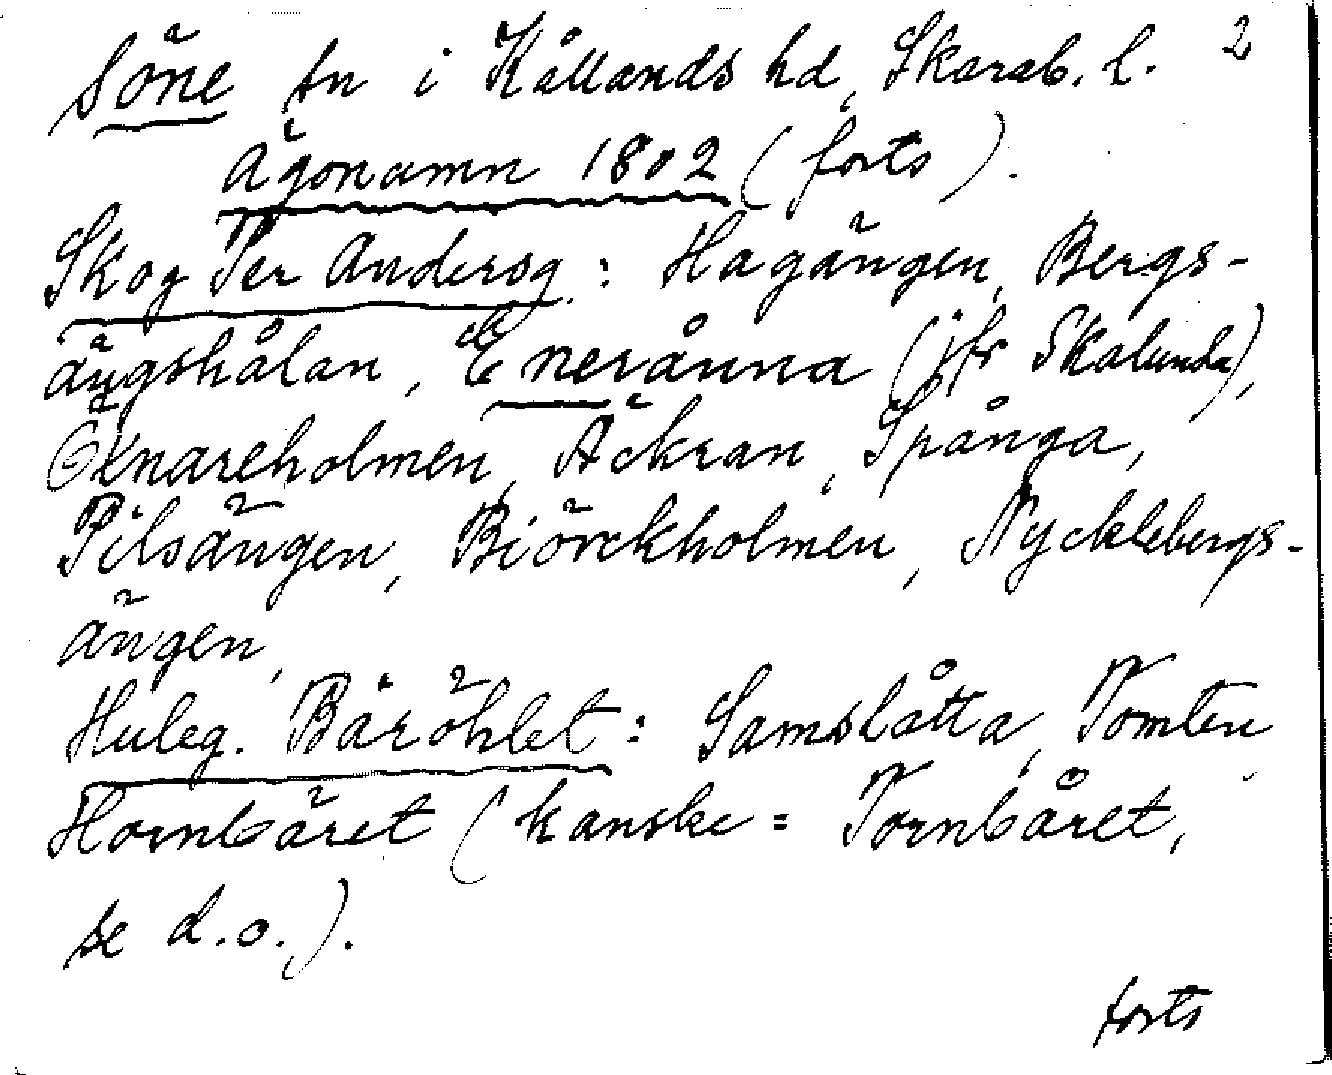 Söne sn i Kållands hd, Skarab. l. 2
Ägonamn 1802 (forts).
Skog Per Andersg: Hagängen, Bergs-
ängshålan, Enerånna (jfr Skalunda),
Äckran, Spånga,
Pilsängen, Biörckholmen, Nycklebergs-
ängen,
Huleg. Bäröhlet: Samslåtta, Tomten
Hornbäret (kanske = Tornbåret,
se d.o.).
forts